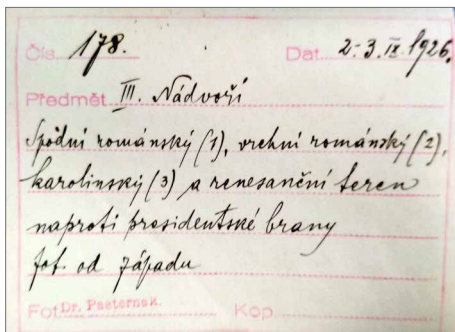 Čís. 178. Dat. 2-3. IX. 1926.
Předmět III. Nádvoří
Spodní románský (1), vrchní románský (2),
karolinský (3) a renesanční teren
naproti presidentské brany
fot. od západu
Fot. Dr. Pasternak. Kop.